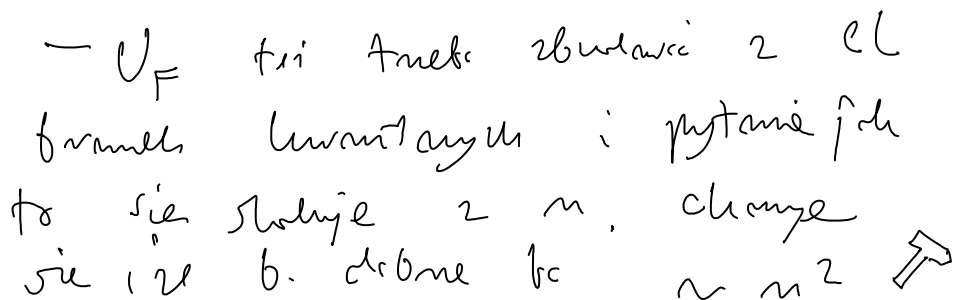 - U_F też trzeba zbudować z el
bramek kwantowych i pytanie jak
to się skaluje z n. okazuje
się, że b. dobrze bo ~ n²